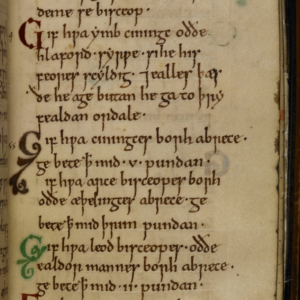 deme se bisceop.
Gif hƿa ymb cininge oððe
hlaford. syrƿe. si he his
feores scyldig. ⁊ ealles þæs
ðe he age butan he ga to þry
fealdan ordale.
Gif hƿa ciningces borh abrece.
ge bete ꝥ mid .v. pundan.
Gif hƿa arce bisceopes borh
oððe æþelinges abrece. ge
bete ꝥ mid þrim pundan.
Gif hƿa leod bisceopes. oððe
ealdormannes borh abrece.
ge bete ꝥ mid .ii. pundan.